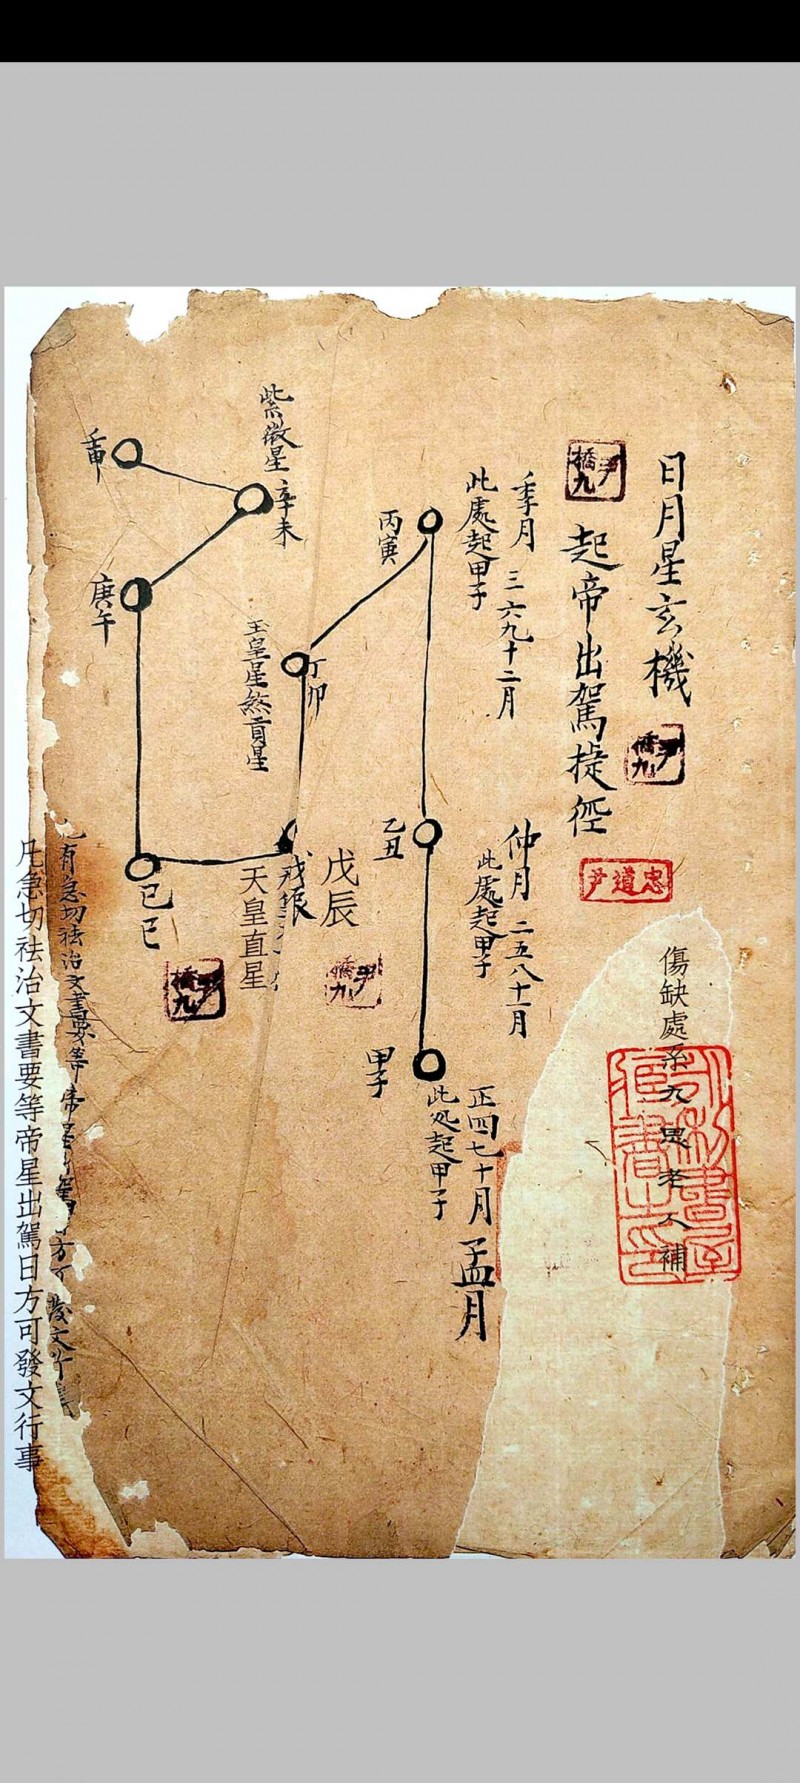 日月星玄機
起帝出駕捷徑
尹道忠
傷缺處系九思老人補
季月 三六九十二月
此處起甲子
仲月 二五八十一月
此處起甲子
正四七十月 孟月
此处起甲子
丙寅
乙丑
甲子
丁卯
戊辰
天皇直星
玉皇星煞貢星
紫微星
辛未
壬申
庚午
己巳
有急切祛治文書要等帝星
方可發文行事
凡急切祛治文書要等帝星出駕日方可發文行事